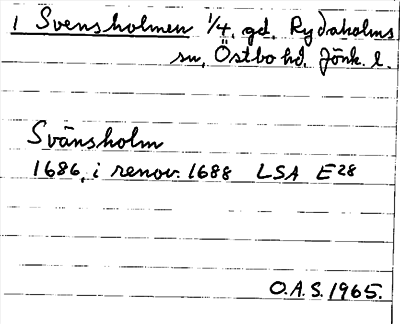 1 Svensholmen 1/4, gd. Rydaholms
sn, Östbo hd. Jönk. l.
Svänsholm
1686, i renov. 1688 LSA E28
O.A.S. 1965.